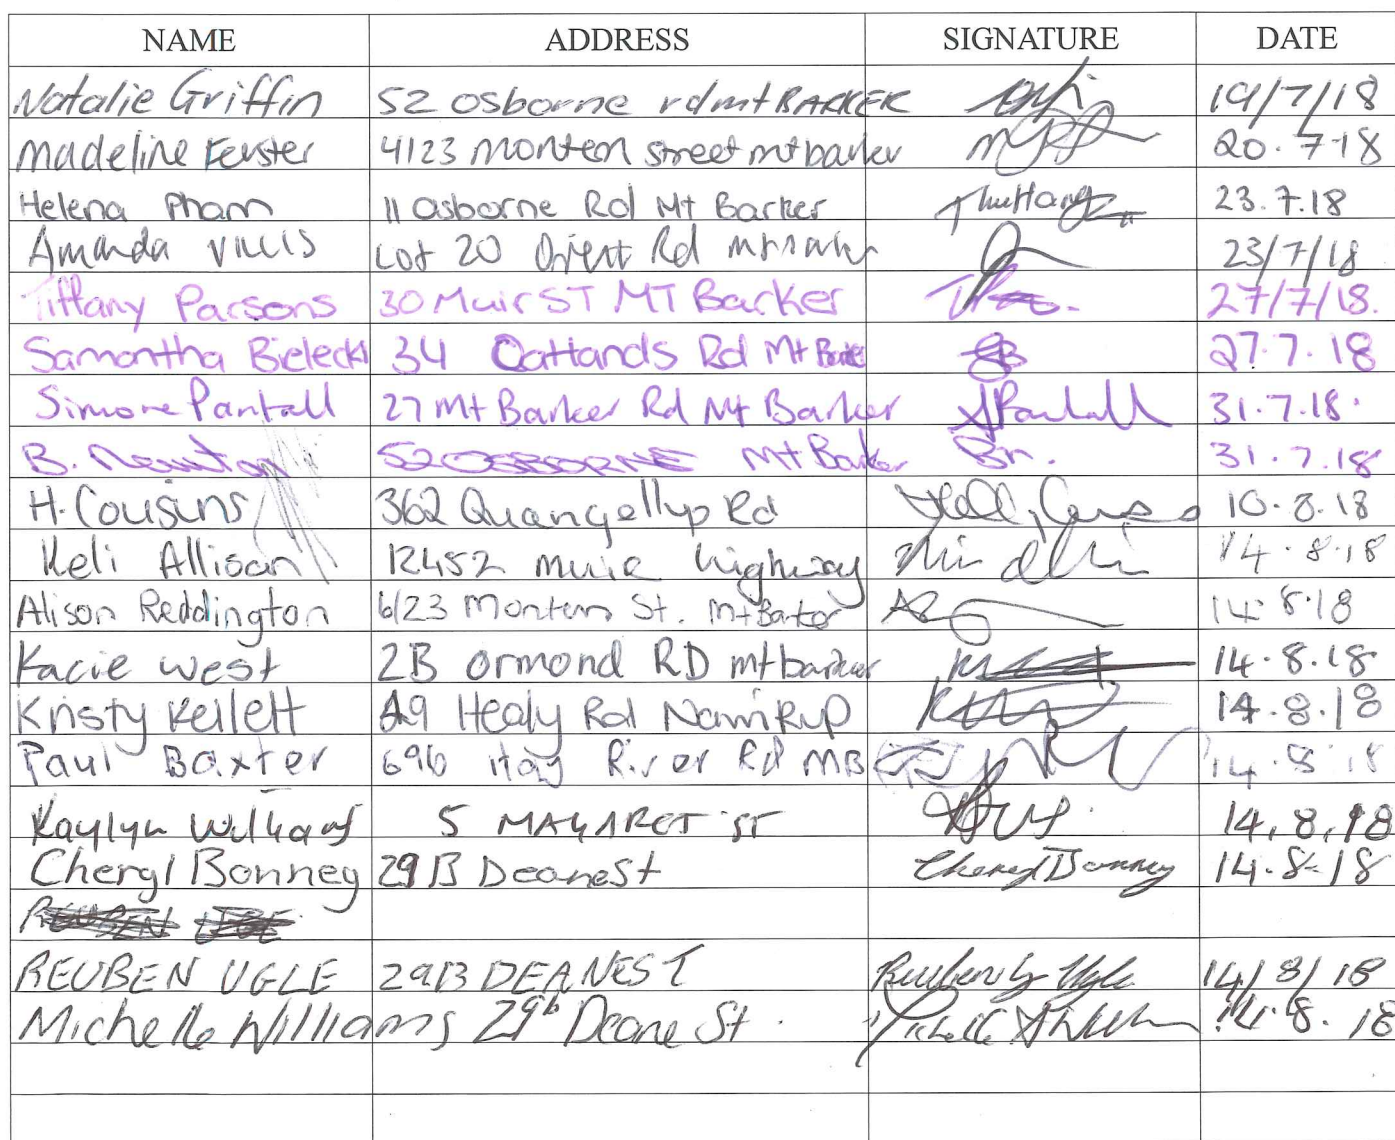 NAME ADDRESS SIGNATURE DATE
Natalie Griffin 52 osborne rd mt BARKER 19/7/18
Madeline 4/23 street mt barker 20.7.18
Helena Pham 11 osborne Rd Mt Barker 23.7.18
Amanda Lot 20 Orient Rd 23/7/18
Tiffany Parsons 30 Muir ST MT Barker 27/7/18.
Samantha Bielecki 34 Oatlands Rd Mt Barker 27.7.18
Simone Pantall 27 Mt Barker Rd Mt Barker SPantall 31.7.18.
B. Newton 52 OSBORNE Mt Barker Bn. 31.7.18
H. Cousins 362 Quangellup Rd 10.8.18
Keli Allison 12452 Muir highway 14.8.18
Alison Reddington 6/23 St. Mt Barker 14.8.18
Kacie West 2B Ormond RD mt barker 14.8.18
Kristy Kellett Healy Rd Narrikup 14.8.18
Paul Baxter 696 Hay River Rd MB 14.8.18
Kaylyn Williams 5 ST 14.8.18
Cheryl Bonney 29B Deane St Cheryl Bonney 14.8.18
REUBEN UGLE 29B DEANE ST Ugle 14/8/18
Michelle Williams 29b Deane St. Michelle 14.8.18